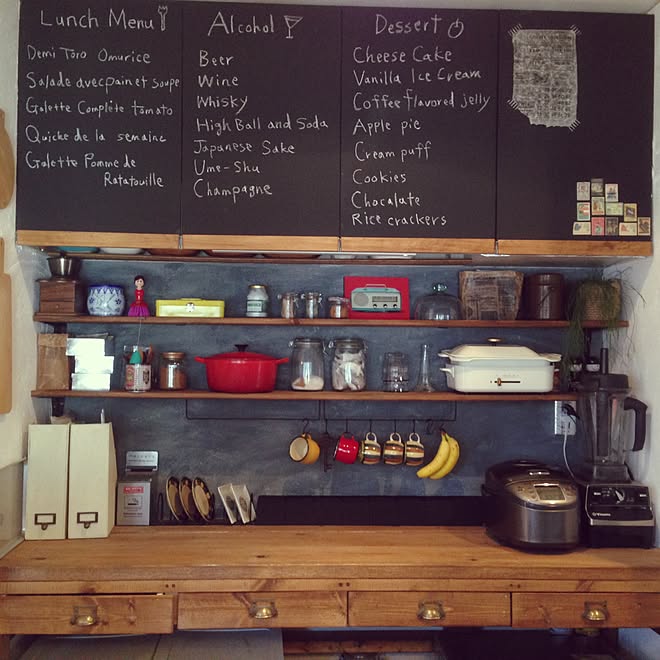 Lunch Menu
Demi Toro Omurice
Salade avec pain et soupe
Galette Complète tomato
Quiche de la semaine
Galette Pomme de
Ratatouille
Alcohol
Beer
Wine
Whisky
High Ball and Soda
Japanese Sake
Ume-Shu
Champagne
Dessert
Cheese Cake
Vanilla Ice Cream
Coffee flavored jelly
Apple pie
Cream puff
Cookies
Chocalate
Rice crackers